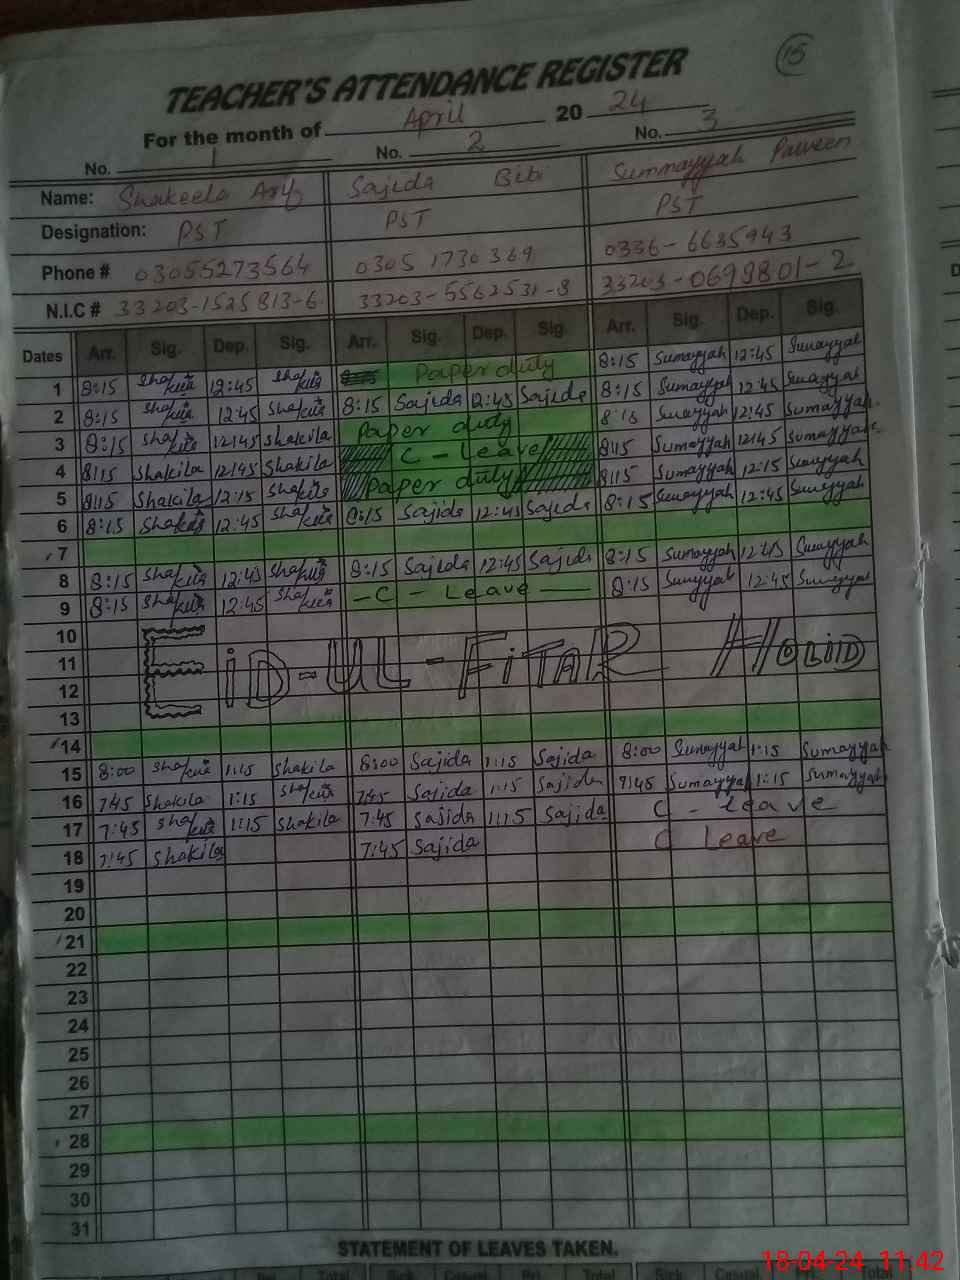 15
TEACHER'S ATTENDANCE REGISTER
For the month of April 20 24
No. 1 No. 2 No. 3
Name: Shakeela Arif Sajida Bibi Summayyah Parveen
Designation: PST PST PST
Phone # 03055273564 0305 1730369 0336-6635943
N.I.C # 33203-1525813-6 33203-5562531-8 33203-0699801-2
Dates Arr. Sig. Dep. Sig. Arr. Sig. Dep. Sig. Arr. Sig. Dep. Sig.
1 8:15 12:45 Paper duty 8:15 Sumayyah 12:45 Sumayyah
2 8:15 12:45 8:15 Sajida 12:45 Sajida 8:15 Sumayyah 12:45 Sumayyah
3 8:15 12:45 Shakila Paper duty 8:15 Sumayyah 12:45 Sumayyah
4 8:15 Shakila 12:45 Shakila C - Leave 8:15 Sumayyah 12:45 Sumayyah
5 8:15 Shakila 12:15 Paper duty 8:15 Sumayyah 12:15 Sumayyah
6 8:15 12:45 8:15 Sajida 12:45 Sajida 8:15 Sumayyah 12:45 Sumayyah
7
8 8:15 12:45 8:15 Sajida 12:45 Sajida 8:15 Sumayyah 12:45 Sumayyah
9 8:15 12:45 - C - Leave 8:15 Sumayyah 12:45 Sumayyah
10
11 EiD-UL-FiTAR HOLiD
12
13
14
15 8:00 1:15 Shakila 8:00 Sajida 1:15 Sajida 8:00 Sumayyah 1:15 Sumayyah
16 7:45 Shakila 1:15 7:45 Sajida 1:15 Sajida 7:45 Sumayyah 1:15 Sumayyah
17 7:45 1:15 Shakila 7:45 Sajida 1:15 Sajida C - leave
18 7:45 Shakila 7:45 Sajida C Leave
19
20
21
22
23
24
25
26
27
28
29
30
31
STATEMENT OF LEAVES TAKEN.
Total Sick Casual Total Sick Total
18-04-24 11:42